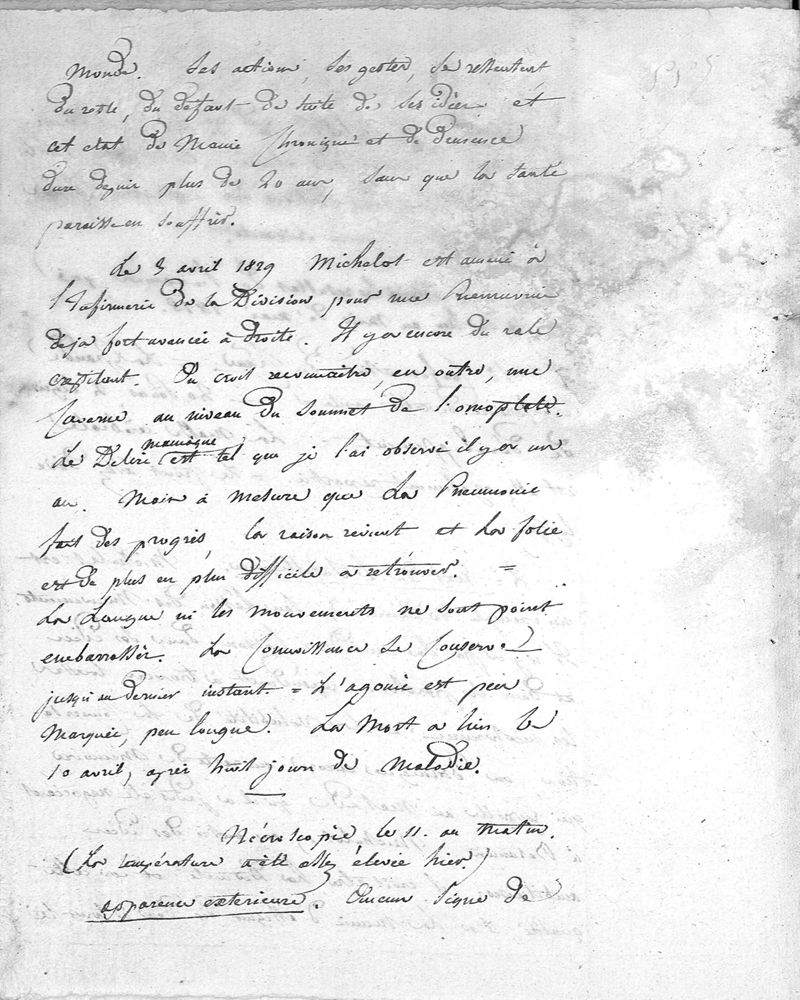 monde. Ses actions, ses gestes, se ressentent
du reste, du défaut de suite de ses idées et
cet état de Manie Chronique et de démence
dure depuis plus de 20 ans, sans que la santé
paraisse en souffrir.
Le 3 avril 1829 Michelot est amené à
l'Infirmerie de la Division pour une Pneumonie
déja fort avancée à droite. Il y a encore du rale
crépitant. On croit reconnaître, en outre, une
Caverne au niveau du sommet de l'omoplate.
maniaque
Le Délire est tel que je l'ai observé il y a un
an. Mais à mesure que la Pneumonie
fait des progrès, la raison revient et la folie
est de plus en plus difficile à retrouver. =
La Langue ni les mouvements ne sont point
embarrassés. La Connaissance se Conserve
jusqu'au dernier instant = L'agonie est peu
Marquée, peu longue. La Mort a lieu le
10 avril, après huit jours de Maladie.
Nécroscopie le 11. au Matin.
(La température a été assez élevée hier.)
apparence extérieure. Aucun Signe de